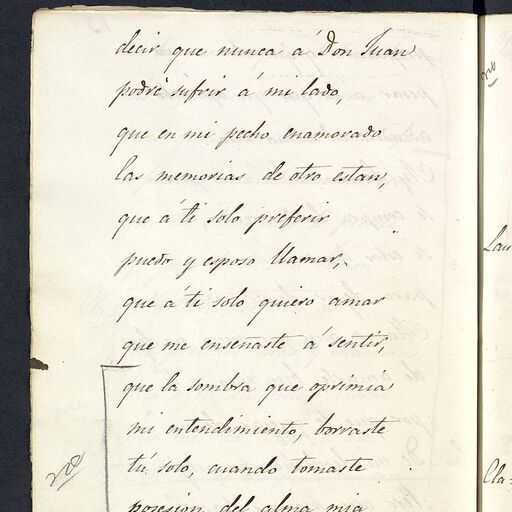 decir que nunca á Don Juan
podré sufrir á mi lado,
que en mi pecho enamorado
las memorias de otro estan,
que á ti solo preferir
puedo y esposo llamar,
que á ti solo quiero amar
que me enseñaste á sentir,
que la sombra que oprimia
mi entendimiento, borraste
tú solo, cuando tomaste
posesion del alma mia
no
Lau
no
Cla=